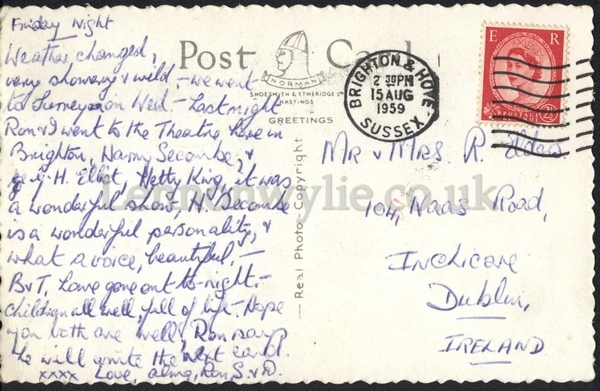 Friday Night
Weather changed,
very showery & wild, – we went
to on Wed. – Last night
Ron & I went to the Theatre here in
Brighton, Harry Secombe, &
G. H. Elliot, Hetty King, it was
a wonderful show, H. Secombe
is a wonderful personality, &
what a voice, beautiful, –
B & T, have gone out to-night. –
Children all well, full of life – Hope
you both are well, Ron says
he will write the next card.
xxxx Love, Ron, S. & D.
Post Card
NORMAN
SHOESMITH & ETHERIDGE LTD
HASTINGS
GREETINGS
Real Photo Copyright
BRIGHTON & HOVE
2 30PM
15 AUG
1959
SUSSEX
E R
POSTAGE
2½D
Mr & Mrs. R.
104, Naas Road,
Inchicore
Dublin,
IRELAND